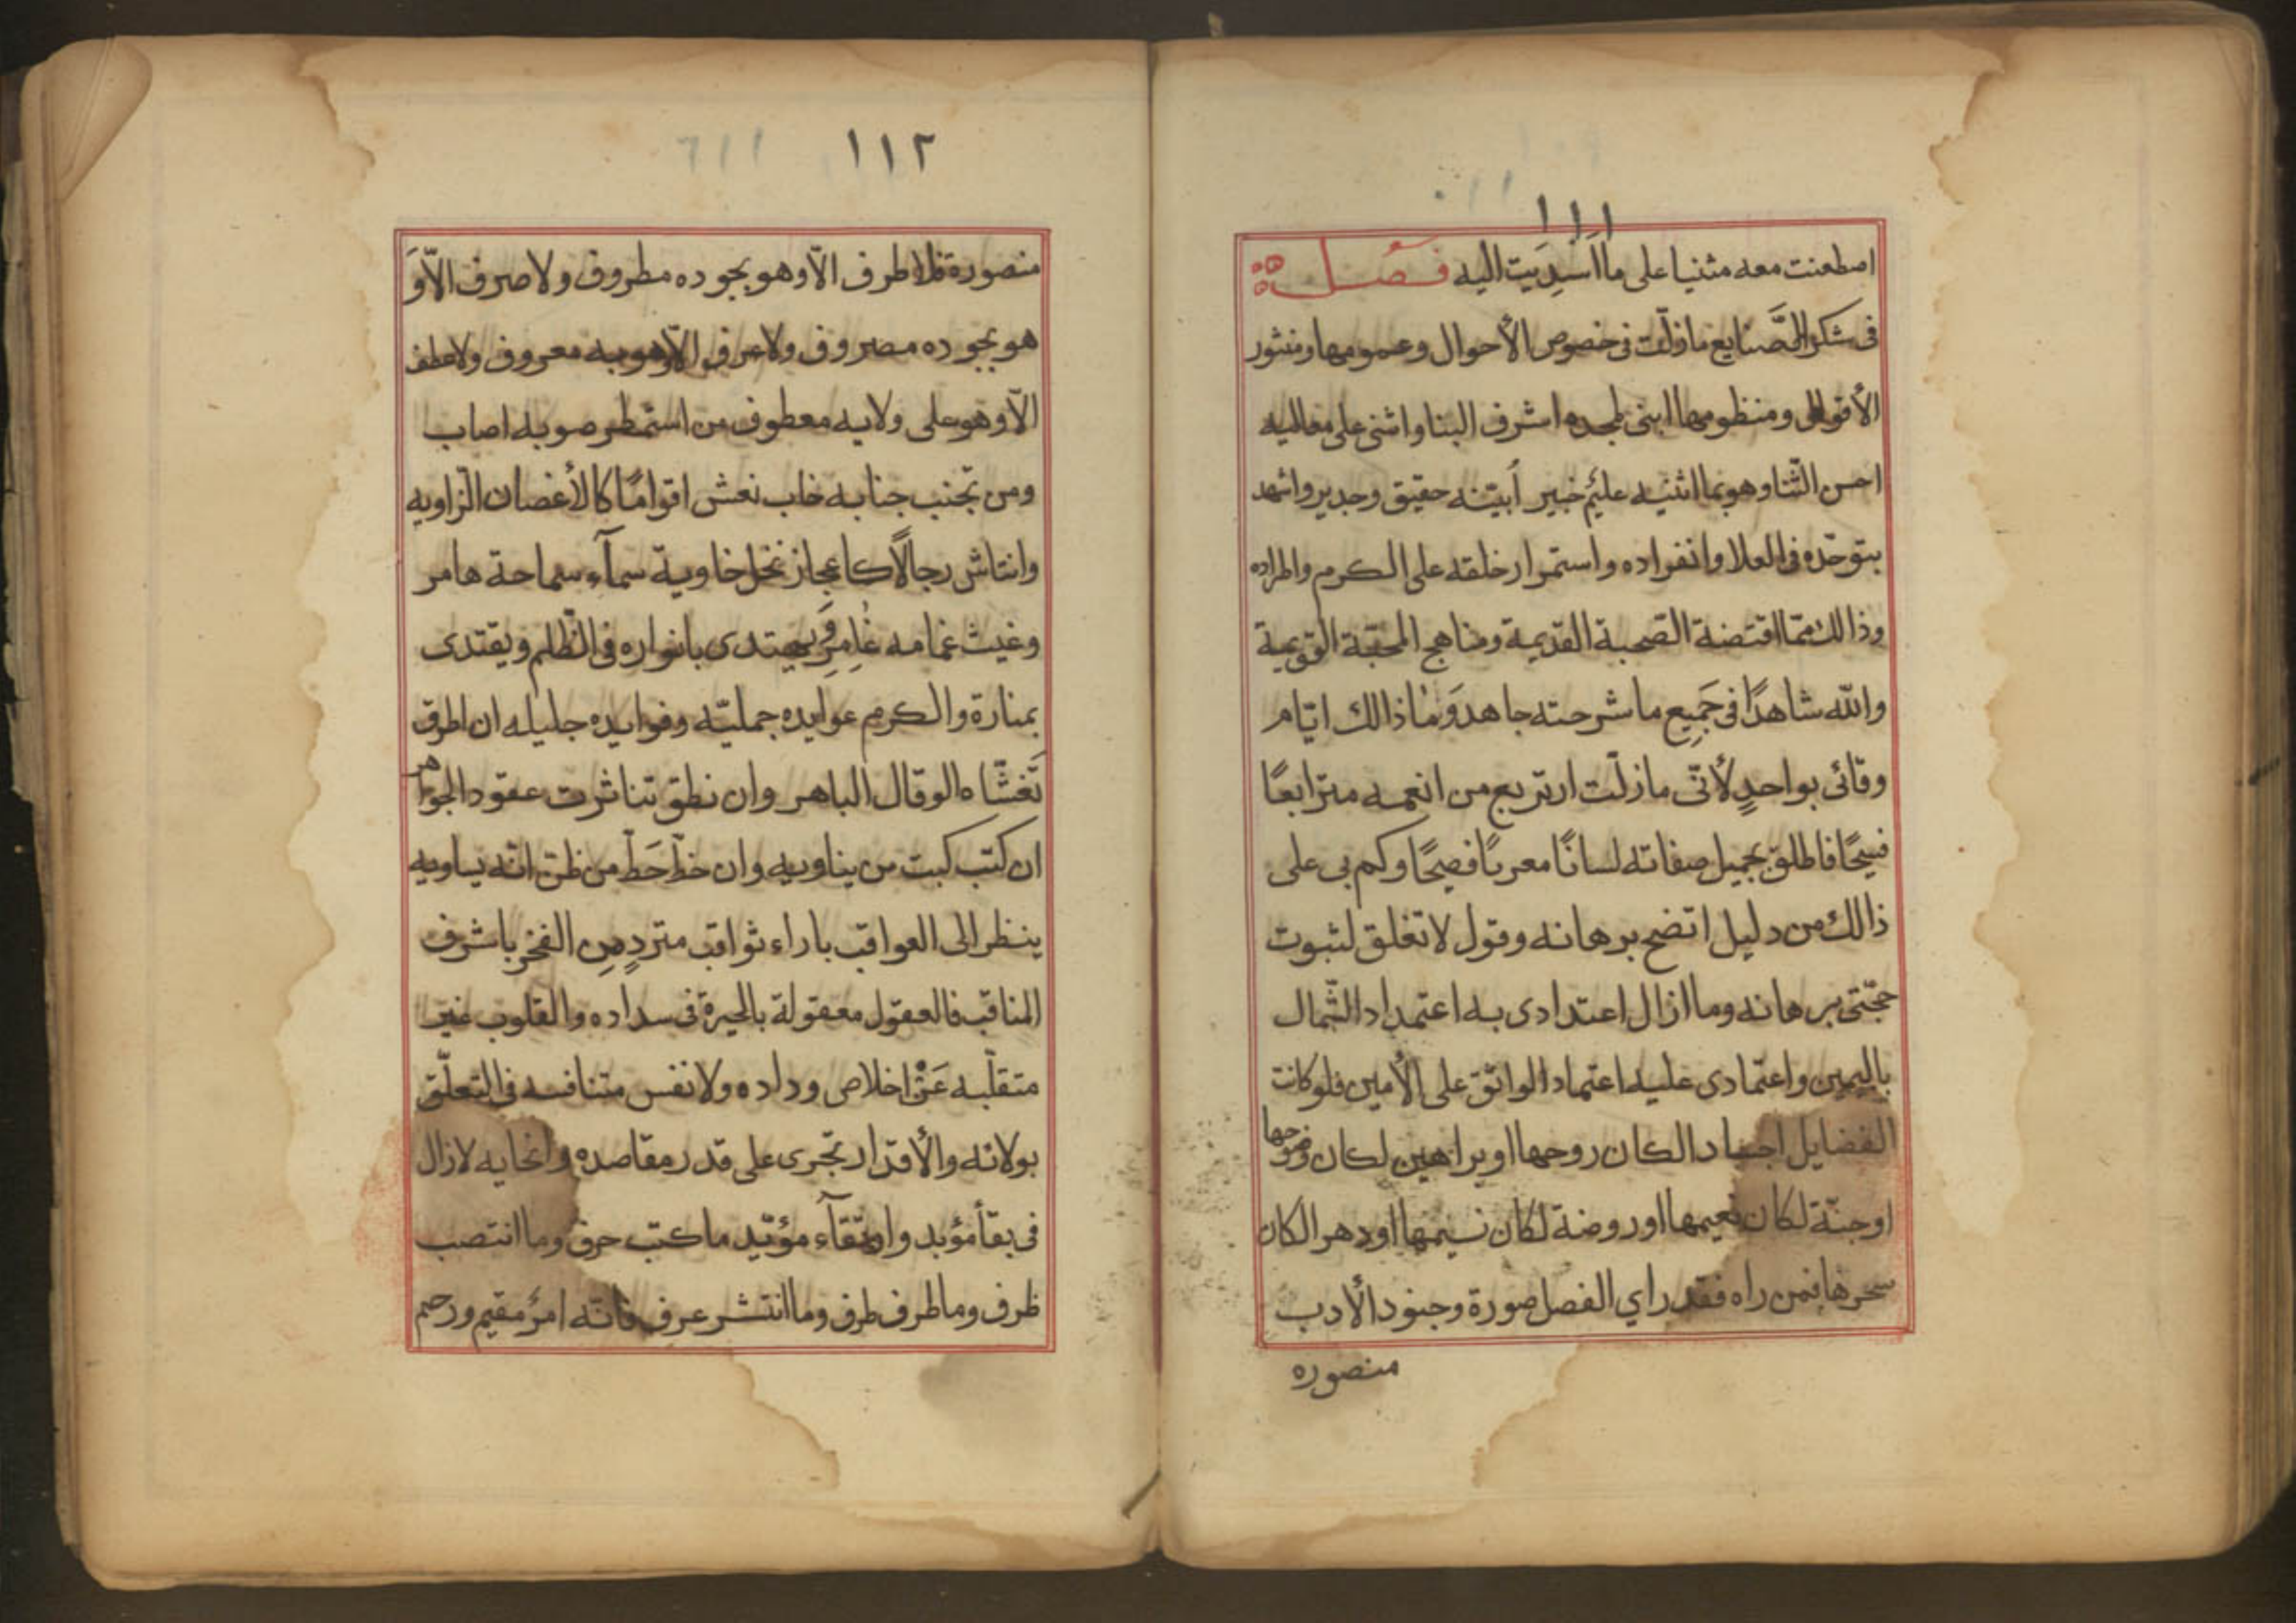 ١١١
اصطعنت معه مثنيا على ما اَسدِيَت اليه فصل
فى شكر الصَّنايع مازلت فى خصوص الأحوال وعمومها ومنثور
الأقوال ومنظومها ابنى لمجده اشرف البنا واثنى على معاليه
احسن الثّنا وهو بما اثنيه عليمٌ خبير أبيّنه حقيق وجدير واشهد
بتوحّده فى العلا وانفراده واستمرار خلقه على الكرم واطراده
وذالك ممّا اقتضة الصّحبة القديمة ومناهج المحبّة القويمة
والله شاهدًا فى جَمِيع ما شرحته جاهد وَمَا ذالك ايّام
وقائى بواحدٍ لأنّى مازلت ارتربع من انعمه مترابعًا
فسيحًا فاطلق بجميل صفاته لسانًا معربًا فصيحًا وكم بى على
ذالك من دليل اتضح برهانه وقول لا تغلق لثبوت
حجّتى برهانه وما ازال اعتدادى به اعتمداد الشّمال
باليمين واعتمادى عليه اعتماد الواثق على الأمين فلو كانت
الفضايل اجساد الكان روحها او براهين لكان وضوحها
او جنّة لكان نعيمها او روضة لكان نسيمها او دهر الكان
سحرها فمن راه فقد راي الفصل صورة وجنود الأدب
منصوره
١١٢
منصورة فلا طرف الاّ وهو بجوده مطروف ولا صرف الاّ وَ
هو بجوده مصروف ولا عرف الاّ وهو به معروف ولا عطف
الاّ وهو على ولايه معطوف من استمطر صوبه اصاب
ومن تجنب جنابه خاب نعش اقوامًا كالأغصان الزّاويه
وانتاش رجالاً كاعجاز نخل خاوية سمآء سماحة هامر
وغيث غمامه غامر يهتدى بانواره فى الظّلم ويقتدى
بمنارة والكرم عوايده جمليّه وفوايده جليله ان اطرق
تَغشّاه الوقال الباهر وان نطق تناثرت عقود الجواهر
ان كتب كبت من يناويه وان خطّ حَطّ من ظن انّه يساويه
ينظر الى العواقب باراء ثواقب متردٍ مِن الفخر باشرف
المناقب فالعقول معقولة بالحيرة فى سداده والقلوب غير
متقلّبه عَنْ اخلاص وداده ولا نفس متنافسه فى التعلّق
بولائه والأقدار تجرى على قدر مقاصده وانحايه لا زال
فى بقأ مؤبد وارتقآء مؤيّد ما كتب حرف وما انتصب
ظرف وما طرف طرف وما انتشر عرف فانّه امرٌ مقيم ورحم